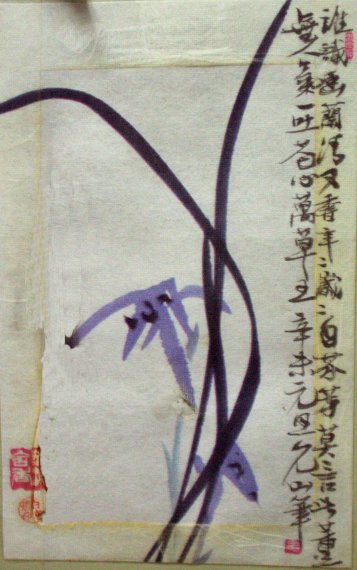 誰識幽蘭清又香年々歲々自芬芳莫言此
無人氣一吐苞心萬草王辛未元旦山筆